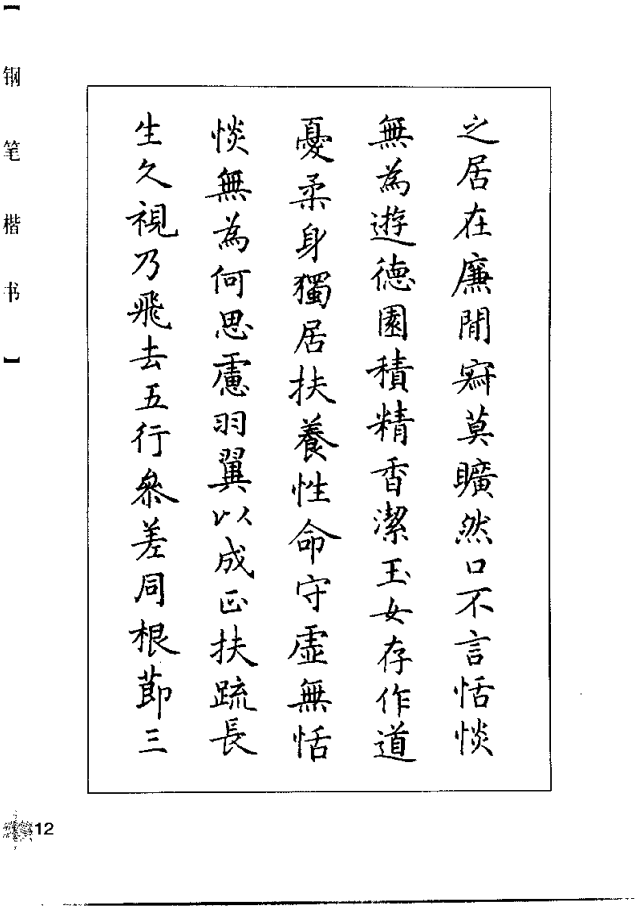 【钢笔楷书】
之居在廉閒寂莫曠然口不言恬惔
無為遊德園積精香潔玉女存作道
憂柔身獨居扶養性命守虛無恬
惔無為何思慮羽翼以成正扶疏長
生久視乃飛去五行參差同根節三
12